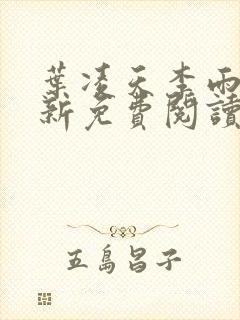 葉凌天李雨
新免費閱讀
五島昌子